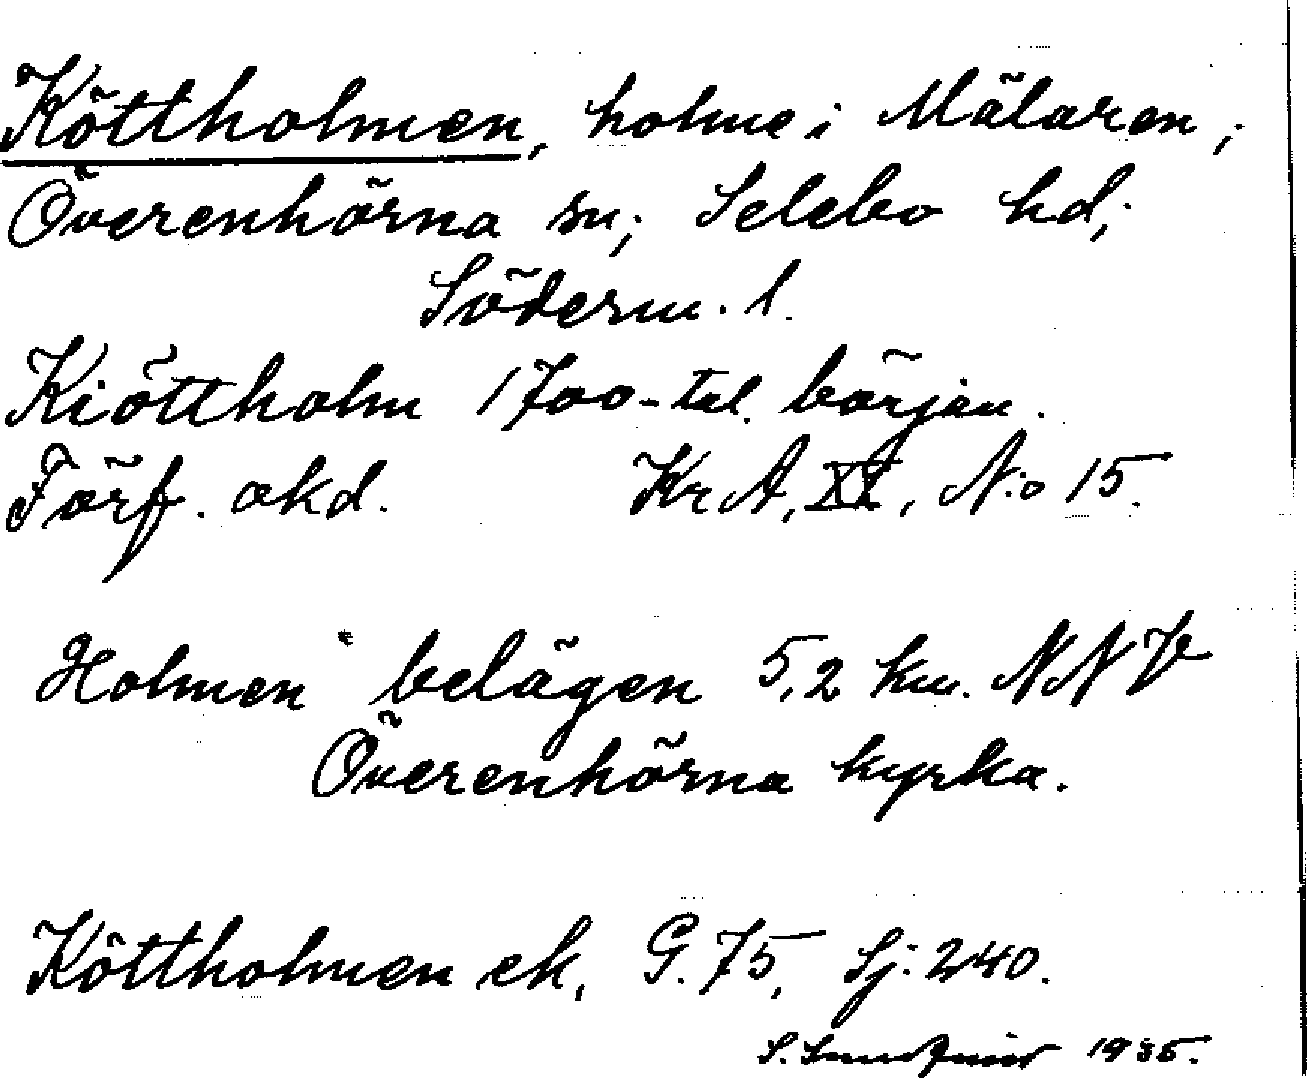 Köttholmen, holme i Mälaren;
Överenhörna sn; Selebo hd;
Söderm. l.
Kiöttholm 1700-tal. början.
Förf. okd. KrA, XI, N:o 15.
Holmen belägen 5,2 km. NNV
Överenhörna kyrka.
Köttholmen ek, G. 75, Sj: 240.
S. 1935.